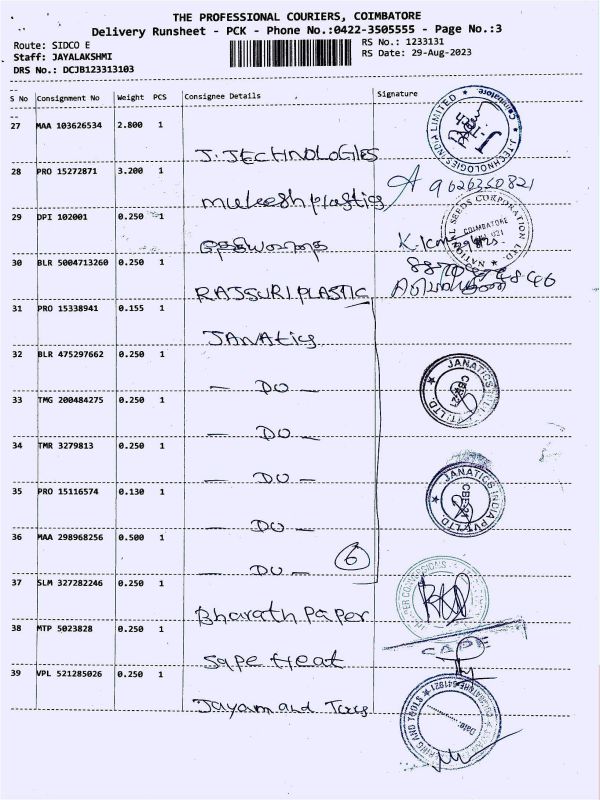 THE PROFESSIONAL COURIERS, COIMBATORE
Delivery Runsheet - PCK - Phone No.:0422-3505555 - Page No.:3
Route: SIDCO E
RS No.: 1233131
Staff: JAYALAKSHMI
RS Date: 29-Aug-2023
DRS No.: DCJB123313103
S No Consignment No Weight PCS Consignee Details Signature
27 MAA 103626534 2.800 1
J. TECHNOLOGIES
J. TECHNOLOGIES INDIA LIMITED Coimbatore
28 PRO 15272871 3.200 1
mukeshplastics
9626350821
29 DPI 102001 0.250 1
NATIONAL SEEDS CORPORATION LTD.
COIMBATORE
30 BLR 5004713260 0.250 1
RAJSURI PLASTIC
31 PRO 15338941 0.155 1
JANAtics
32 BLR 475297662 0.250 1
— DO —
JANATICS
33 TMG 200484275 0.250 1
— DO —
34 TMR 3279813 0.250 1
— DO —
35 PRO 15116574 0.130 1
— DO —
JANATICS INDIA PVT. LTD.
CBE-21
36 MAA 298968256 0.500 1
— DO —
6
37 SLM 327282246 0.250 1
Bharath Paper
38 MTP 5023828 0.250 1
Sape treat
39 VPL 521285026 0.250 1
Jayam and
Date: